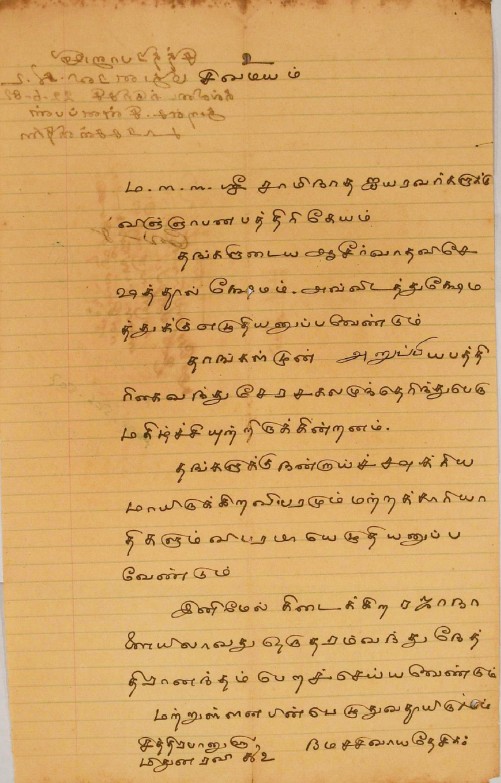 உ
சிவமயம்
ம-ா-ா-ஸ்ரீ சாமிநாத ஐயரவர்களுக்கு
விஞ்ஞாபன பத்திரிகேயம்
தங்களுடைய ஆசீர்வாதவிசே
ஷத்தால் க்ஷேமம். அவ்விடத்துக்ஷேம
த்துக்கு எழுதியனுப்பவேண்டும்
தாங்கள் முன் அனுப்பியபத்தி
ரிகைவந்துசேர சகலமுந்தெரிந்துபெரு
மகிழ்ச்சியுற்றிருக்கின்றனம்.
தங்களுக்கு நன்றாய்ச் சவுக்கிய
மாயிருக்கிறவிபரமும் மற்றக்காரியா
திகளும் விபரமாயெழுதியனுப்ப
வேண்டும்
இனிமேல் கிடைக்கிற ரஜாநா
ளையிலாவது ஒருதரம்வந்து நேத்
திரானந்தம் பெறச்செய்யவேண்டும்
மற்றுள்ளன பின்பெழுதுவதாயிருக்கும்
சித்திரபானு௵ நமச்சிவாயதேசிகர்
மிதுனரவி ௧௨